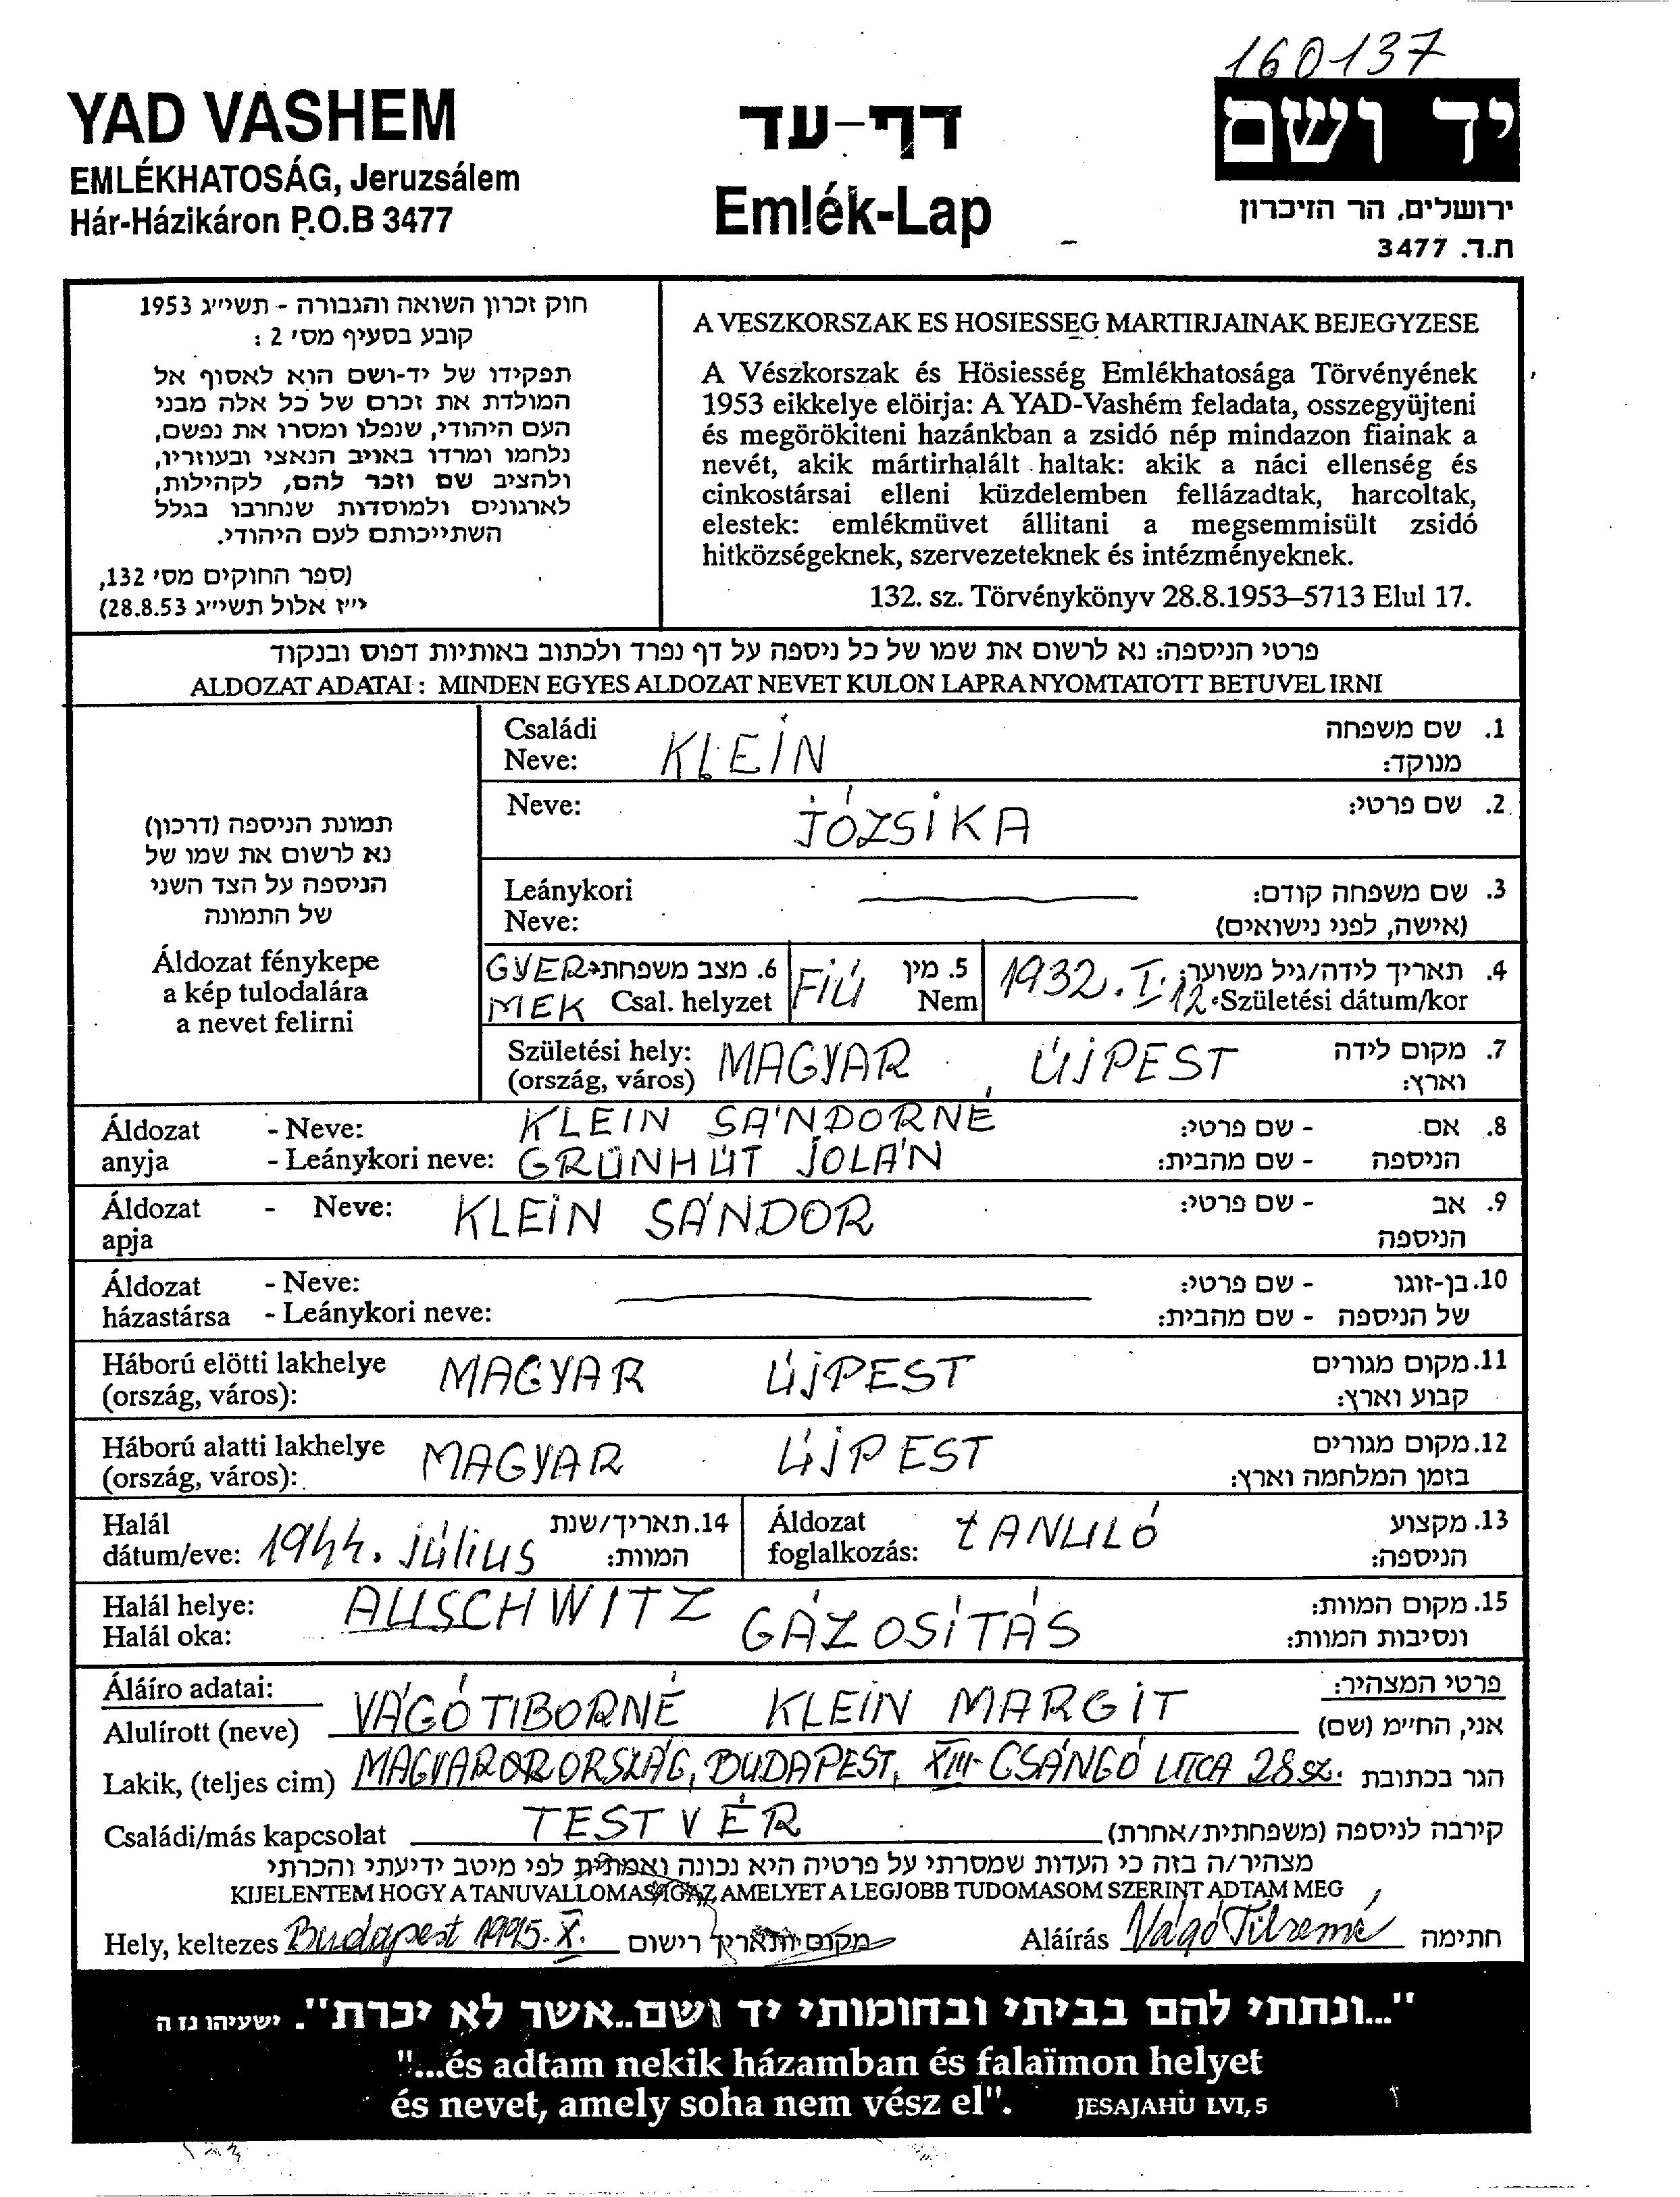 160137
YAD VASHEM
EMLÉKHATOSÁG, Jeruzsálem
Hár-Házikáron P.O.B 3477
דף-עד
Emlék-Lap
יד ושם
ירושלים, הר הזיכרון
ת.ד. 3477
חוק זכרון השואה והגבורה - תשי״ג 1953
קובע בסעיף מס' 2 :
תפקידו של יד-ושם הוא לאסוף אל
המולדת את זכרם של כל אלה מבני
העם היהודי, שנפלו ומסרו את נפשם,
נלחמו ומרדו באויב הנאצי ובעוזריו,
ולהציב שם וזכר להם, לקהילות,
לארגונים ולמוסדות שנחרבו בגלל
השתייכותם לעם היהודי.
(ספר החוקים מס' 132,
י״ז אלול תשי״ג 28.8.53)
A VESZKORSZAK ES HOSIESSEG MARTIRJAINAK BEJEGYZESE
A Vészkorszak és Hösiesség Emlékhatosága Törvényének
1953 eikkelye elöirja: A YAD-Vashém feladata, osszegyüjteni
és megörökiteni hazánkban a zsidó nép mindazon fiainak a
nevét, akik mártirhalált haltak: akik a náci ellenség és
cinkostársai elleni küzdelemben fellázadtak, harcoltak,
elestek: emlékmüvet állitani a megsemmisült zsidó
hitközségeknek, szervezeteknek és intézményeknek.
132. sz. Törvénykönyv 28.8.1953–5713 Elul 17.
פרטי הניספה: נא לרשום את שמו של כל ניספה על דף נפרד ולכתוב באותיות דפוס ובנקוד
ALDOZAT ADATAI : MINDEN EGYES ALDOZAT NEVET KULON LAPRA NYOMTATOTT BETUVEL IRNI
תמונת הניספה (דרכון)
נא לרשום את שמו של
הניספה על הצד השני
של התמונה
Áldozat fénykepe
a kép tulodalára
a nevet felirni
Családi Neve: KLEIN 1. שם משפחה מנוקד:
Neve: JÓZSIKA 2. שם פרטי:
Leánykori Neve: 3. שם משפחה קודם:
(אישה, לפני נישואים)
GYERMEK 6. מצב משפחתי Csal. helyzet FIÚ 5. מין Nem 1932. I. 12. 4. תאריך לידה/גיל משוער: Születési dátum/kor
Születési hely: (ország, város) MAGYAR, ÚJPEST 7. מקום לידה וארץ:
Áldozat anyja - Neve: KLEIN SÁNDORNÉ 8. אם הניספה - שם פרטי:
- Leánykori neve: GRÜNHUT JOLÁN - שם מהבית:
Áldozat apja - Neve: KLEIN SÁNDOR 9. אב הניספה - שם פרטי:
Áldozat házastársa - Neve: 10. בן-זוגו של הניספה - שם פרטי:
- Leánykori neve: - שם מהבית:
Háború elötti lakhelye (ország, város): MAGYAR ÚJPEST 11. מקום מגורים קבוע וארץ:
Háború alatti lakhelye (ország, város): MAGYAR ÚJPEST 12. מקום מגורים בזמן המלחמה וארץ:
Halál dátum/eve: 1944. július 14. תאריך/שנת המוות: Áldozat foglalkozás: TANULÓ 13. מקצוע הניספה:
Halál helye: AUSCHWITZ 15. מקום המוות:
Halál oka: GÁZOSÍTÁS ונסיבות המוות:
Áláíro adatai: פרטי המצהיר:
Alulírott (neve) VÁGÓ TIBORNÉ KLEIN MARGIT אני, החי״מ (שם)
Lakik, (teljes cim) MAGYARORORSZÁG, BUDAPEST, XIII. CSÁNGÓ UTCA 28 sz. הגר בכתובת
Családi/más kapcsolat TESTVÉR קירבה לניספה (משפחתית/אחרת)
מצהיר/ה בזה כי העדות שמסרתי על פרטיה היא נכונה ואמתית לפי מיטב ידיעתי והכרתי
KIJELENTEM HOGY A TANUVALLOMAS IGAZ AMELYET A LEGJOBB TUDOMASOM SZERINT ADTAM MEG
Hely, keltezes Budapest 1995. X. מקום ותאריך רישום Aláírás Vágó Tiborné חתימה
"...ונתתי להם בביתי ובחומותי יד ושם..אשר לא יכרת". ישעיהו נו ה
"...és adtam nekik házamban és falaïmon helyet
és nevet, amely soha nem vész el". JESAJAHÙ LVI, 5